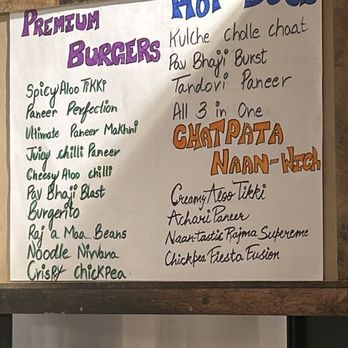 PREMIUM
BURGERS
Spicy Aloo Tikki
Paneer Perfection
Ultimate Paneer Makhni
Juicy chilli Paneer
Cheesy Aloo chilli
Pav Bhaji Blast
Burgerito
Raj a Maa Beans
Noodle Nirvana
Crispy chickpea
HOT DOGS
Kulche cholle chaat
Pav Bhaji Burst
Tandoori Paneer
All 3 in One
CHATPATA
NAAN-Wich
Creamy Aloo Tikki
Achari Paneer
Naan-tastic Rajma Supereme
Chickpea Fiesta Fusion